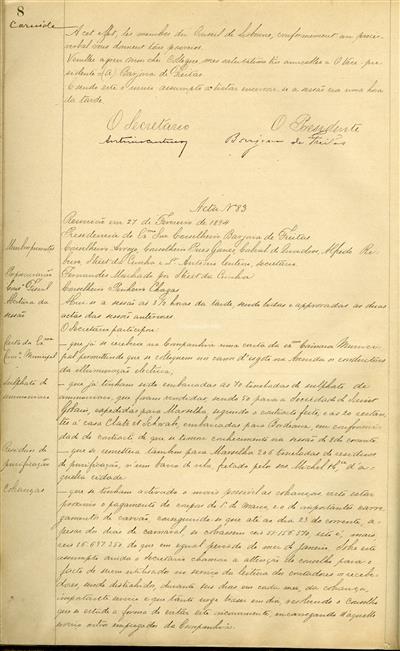 8
Carnide
A cet effet, les membres du Conseil de Lisbonne, conformément au procès-
verbal vous donnent leurs pouvoirs.
Veuillez agréer mon cher Collègue mes salutations très amicales = O Vice-pre-
sidente (a) Barjona de Freitas
E sendo este o unico assumpto a tratar encerrou-se a sessão era uma hora
da tarde.
O Secretario
O Presidente
Barjona de Freitas
Acta Nº 83
Reunião em 27 de Fevereiro de 1894
Presidencia do Exmo Snr Conselheiro Barjona de Freitas
Membros presentes
Conselheiros Arroyo, Conselheiro Pires Gomes Cabral de Alfredo Ri-
beiro, Street da Cunha e Dr Antonio Centeno, secretario
Representação
Fernandes Machado por Street da Cunha
Cons.º Fiscal
Conselheiro Pinheiro Chagas
Abertura da
sessão
Abriu-se a sessão ás 3½ horas da tarde, sendo lidas e approvadas as duas
actas das sessões anteriores.
O Secretario participou:
Carta da Exma
Camª Municipal
— que já se recebeu na Companhia uma carta da Exma Camara Munici-
pal permittindo que se colloquem no cano d'esgoto na Avenida os conductores
da illuminação electrica,
Sulphato de
ammoniaco
— que já tinham sido embarcadas as 70 toneladas de sulphato de
ammoniaco, que foram vendidas, sendo 50 para a Sociedade de Saint
Gobain, expedidas para Marselha segundo o contracto feito, e as 20 restan-
tes á casa et Schwab, embarcadas para Bordeaux, em conformi-
dade do contracto de que se tomou conhecimento na sessão de 20 do corrente
Residuos de
purificação
— que se remettera tambem para Marselha 202 toneladas de residuos
de purificação, n'um barco de vela, fretado pelo sr. Michel d'a-
quella cidade
Cobranças
— que se tinham activado o mais possivel as cobranças, visto estar
proximo o pagamento do coupon do 1º de Março, e o de importantes carre-
gamentos de carvão, conseguindo-se que até ao dia 23 do corrente, a-
pesar dos dias de carnaval, se cobrassem reis isto é, mais
reis do que em egual periodo do mez de Janeiro. Sobre este
assumpto ainda o secretario chamou a attenção do conselho para o
facto de serem utilisados no serviço da leitura dos contadores os recebe-
dores, sendo distrahidos durante uns dias em cada mez da cobrança,
importante serviço e que tanto urge trazer em dia, resolvendo o Conselho
que se estude a forma de evitar este inconveniente, encarregando d'aquelle
serviço outros empregados da Companhia.